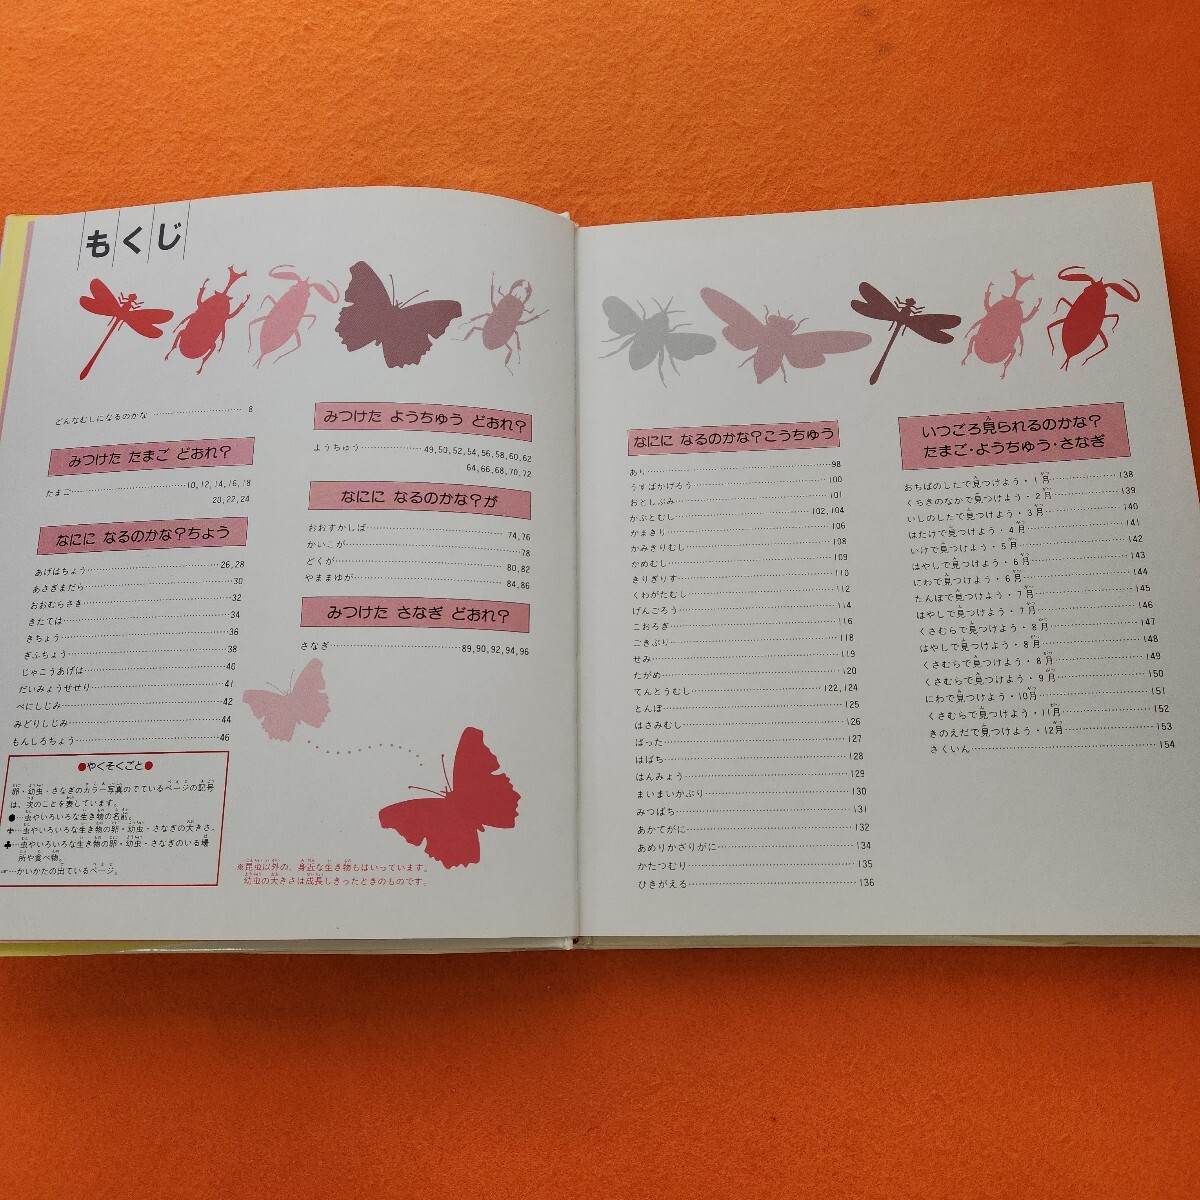 もくじ
どんなむしになるのかな………………………8
みつけた たまご どおれ？
たまご………………………10,12,14,16,18
20,22,24
なにに なるのかな？ちょう
あげはちょう………………………26,28
あさぎまだら………………………30
おおむらさき………………………32
きたては………………………34
きちょう………………………36
ぎふちょう………………………38
じゃこうあげは………………………40
だいみょうせせり………………………41
べにしじみ………………………42
みどりしじみ………………………44
もんしろちょう………………………46
●やくそくごと●
卵・幼虫・さなぎのカラー写真のでているページの記号
は、次のことを表しています。
●…虫やいろいろな生き物の名前。
✚…虫やいろいろな生き物の卵・幼虫・さなぎの大きさ。
♣…虫やいろいろな生き物の卵・幼虫・さなぎのいる場
所や食べ物。
…かいかたの出ているページ。
みつけた ようちゅう どおれ？
ようちゅう………………………49,50,52,54,56,58,60,62
64,66,68,70,72
なにに なるのかな？が
おおすかしば………………………74,76
かいこが………………………78
どくが………………………80,82
やままゆが………………………84,86
みつけた さなぎ どおれ？
さなぎ………………………89,90,92,94,96
※昆虫以外の、身近な生き物もはいっています。
幼虫の大きさは成長しきったときのものです。
なにに なるのかな？こうちゅう
あり………………………98
うすばかげろう………………………100
おとしぶみ………………………101
かぶとむし………………………102,104
かまきり………………………106
かみきりむし………………………108
かめむし………………………109
きりぎりす………………………110
くわがたむし………………………112
げんごろう………………………114
こおろぎ………………………116
ごきぶり………………………118
せみ………………………119
たがめ………………………120
てんとうむし………………………122,124
とんぼ………………………125
はさみむし………………………126
ばった………………………127
はばち………………………128
はんみょう………………………129
まいまいかぶり………………………130
みつばち………………………131
あかてがに………………………132
あめりかざりがに………………………134
かたつむり………………………135
ひきがえる………………………136
いつごろ見られるのかな？
たまご・ようちゅう・さなぎ
おちばのしたで見つけよう・1月………………………138
くちきのなかで見つけよう・2月………………………139
いしのしたで見つけよう・3月………………………140
はたけで見つけよう・4月………………………141
いけで見つけよう・5月………………………142
はやしで見つけよう・6月………………………143
にわで見つけよう・6月………………………144
たんぼで見つけよう・7月………………………145
はやしで見つけよう・7月………………………146
くさむらで見つけよう・8月………………………147
はやしで見つけよう・8月………………………148
くさむらで見つけよう・8月………………………149
くさむらで見つけよう・9月………………………150
にわで見つけよう・10月………………………151
くさむらで見つけよう・11月………………………152
きのえだで見つけよう・12月………………………153
さくいん………………………154